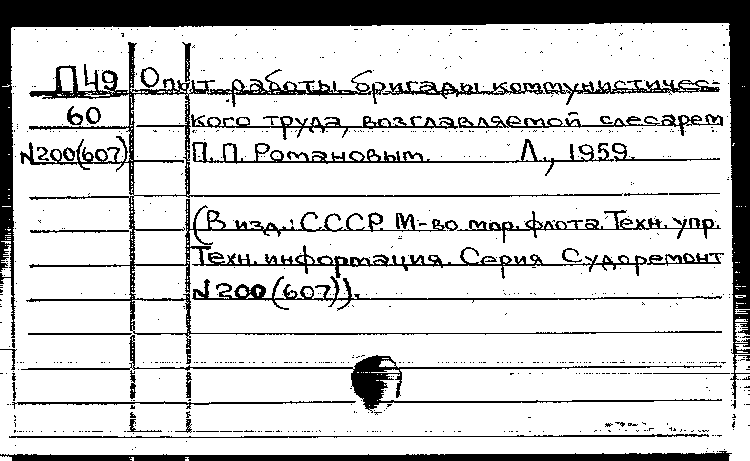 П49 Опыт работы бригады коммунистичес-
60 кого труда, возглавляемой слесарем
N200(607) П.П. Романовым. Л., 1959.
(В изд.: СССР М-во мор. флота. Техн. упр.
Техн. информация. Серия Судоремонт
N200(607)).